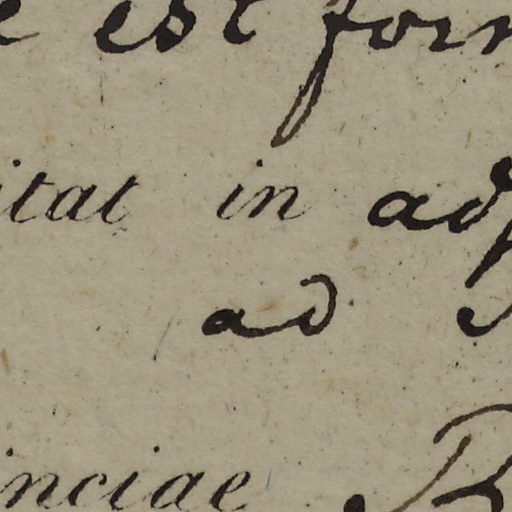 e est for
itat in ad
ad
inciae R